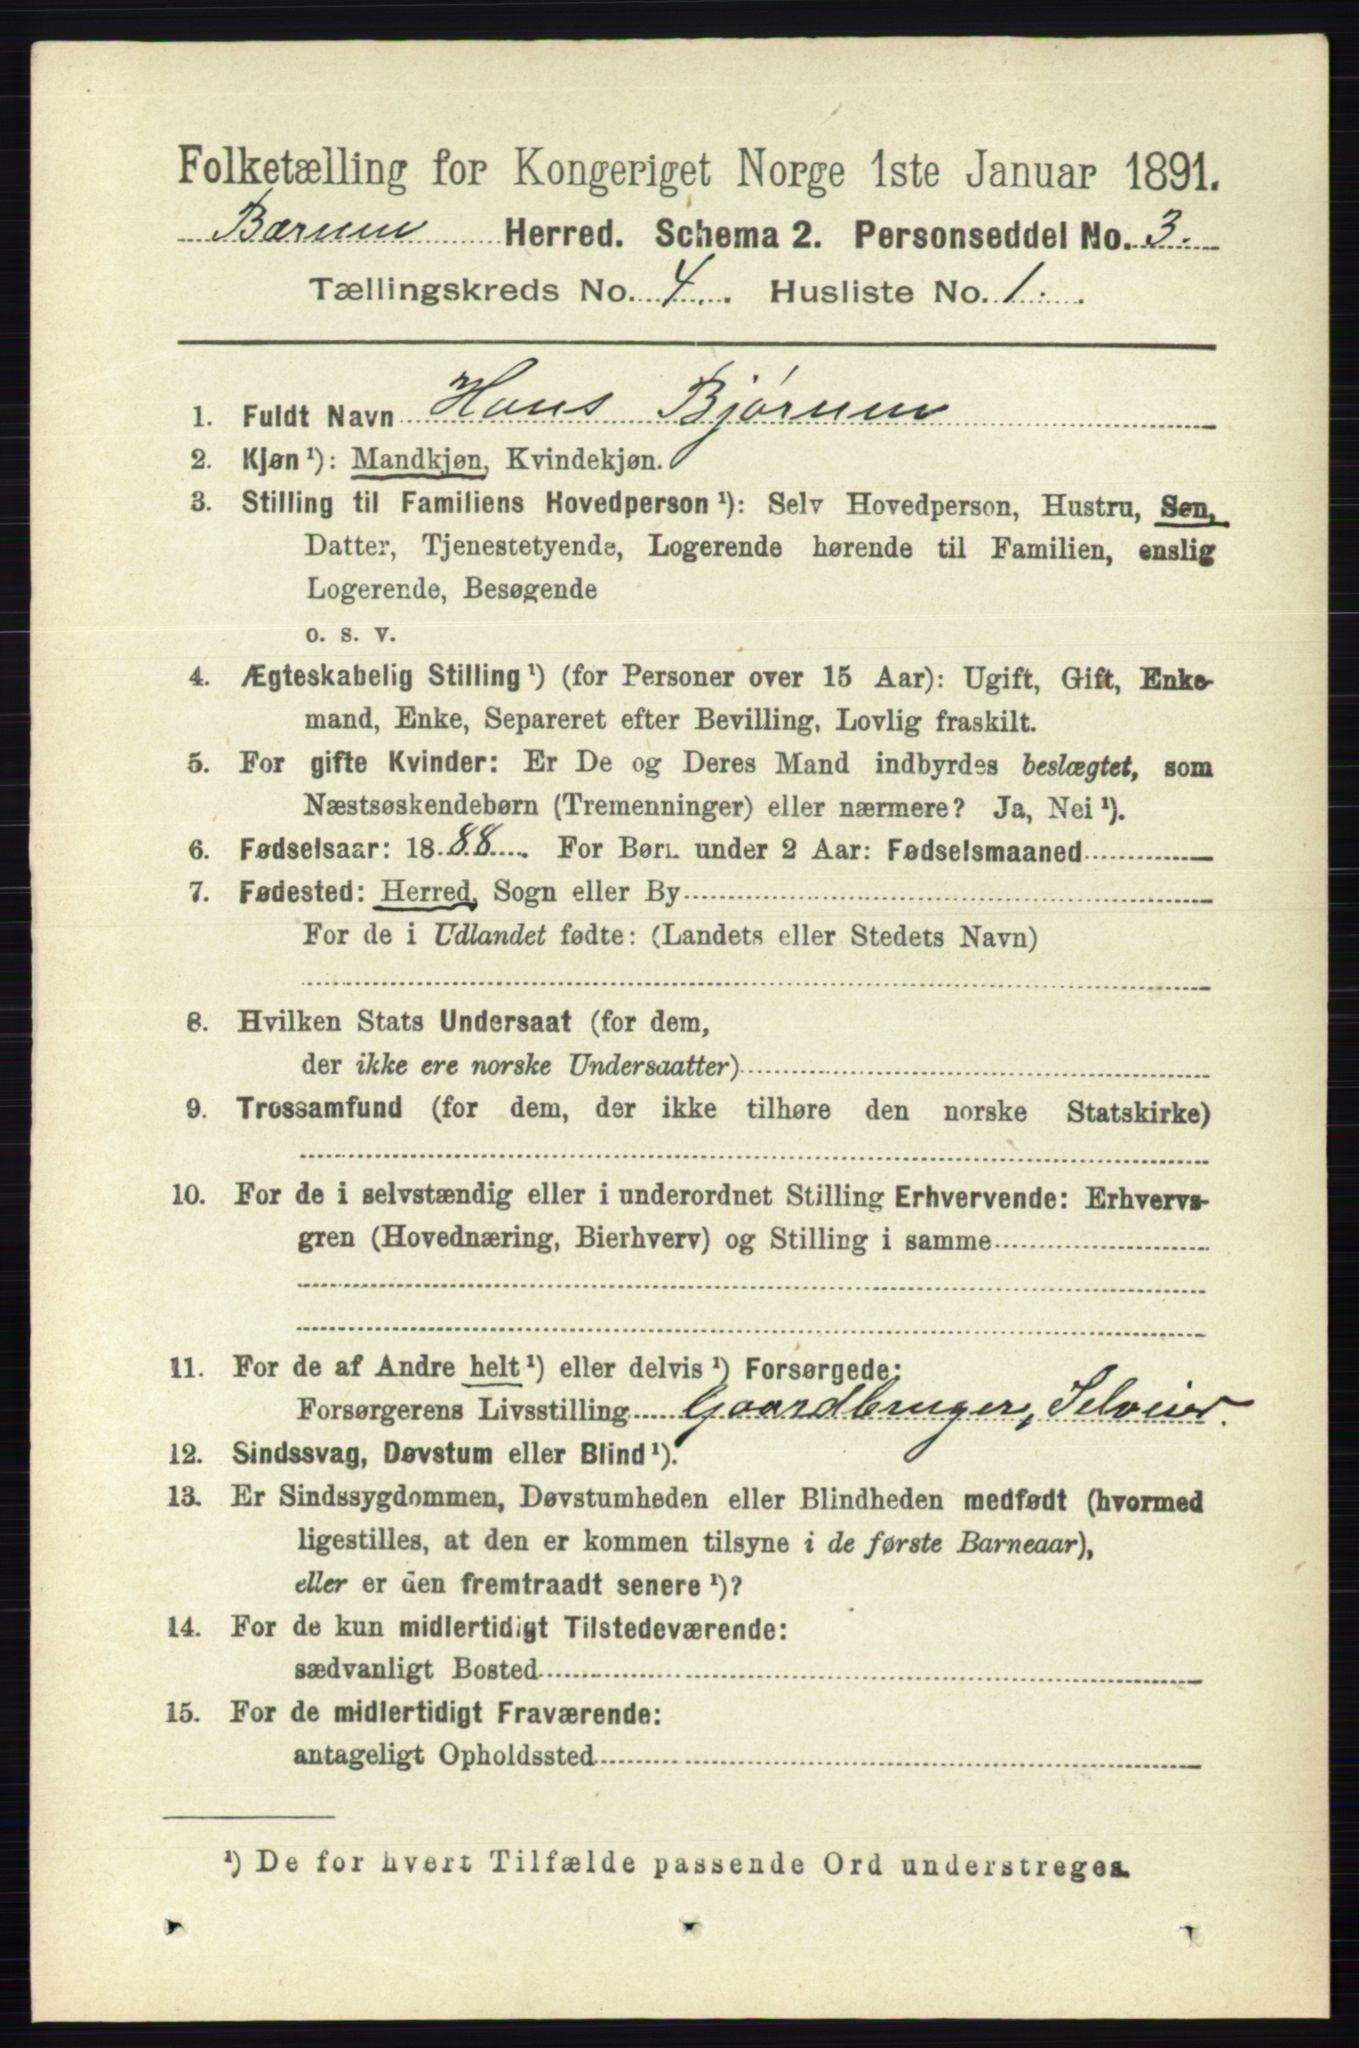 Folketælling for Kongeriget Norge 1ste Januar 1891.
Bærum Herred. Schema 2. Personseddel No. 3.
Tællingskreds No. 4. Husliste No. 1.
1. Fuldt Navn Hans Bjørum
2. Kjøn ¹): Mandkjøn, Kvindekjøn.
3. Stilling til Familiens Hovedperson ¹): Selv Hovedperson, Hustru, Søn,
Datter, Tjenestetyende, Logerende hørende til Familien, enslig
Logerende, Besøgende
o. s. v.
4. Ægteskabelig Stilling ¹) (for Personer over 15 Aar): Ugift, Gift, Enke-
mand, Enke, Separeret efter Bevilling, Lovlig fraskilt.
5. For gifte Kvinder: Er De og Deres Mand indbyrdes beslægtet, som
Næstsøskendebørn (Tremenninger) eller nærmere? Ja, Nei ¹).
6. Fødselsaar: 1888. For Børn under 2 Aar: Fødselsmaaned
7. Fødested: Herred, Sogn eller By
For de i Udlandet fødte: (Landets eller Stedets Navn)
8. Hvilken Stats Undersaat (for dem,
der ikke ere norske Undersaatter)
9. Trossamfund (for dem, der ikke tilhøre den norske Statskirke)
10. For de i selvstændig eller i underordnet Stilling Erhvervende: Erhvervs-
gren (Hovednæring, Bierhverv) og Stilling i samme
11. For de af Andre helt ¹) eller delvis ¹) Forsørgede:
Forsørgerens Livsstilling Gaardbruger, Selveier.
12. Sindssvag, Døvstum eller Blind ¹).
13. Er Sindssygdommen, Døvstumheden eller Blindheden medfødt (hvormed
ligestilles, at den er kommen tilsyne i de første Barneaar),
eller er den fremtraadt senere ¹)?
14. For de kun midlertidigt Tilstedeværende:
sædvanligt Bosted
15. For de midlertidigt Fraværende:
antageligt Opholdssted
¹) De for hvert Tilfælde passende Ord understreges.